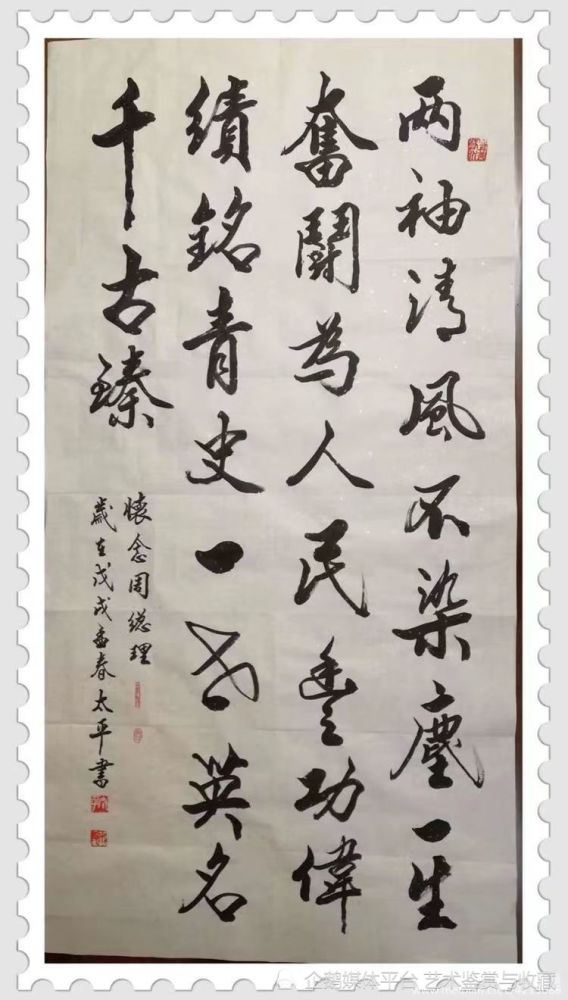 两袖清風不染塵一生
奮鬪為人民豐功偉
績銘青史一世英名
千古臻
懷念周総理
歲在戊戌孟春太平書
企鹅媒体平台 艺术鉴赏与收藏